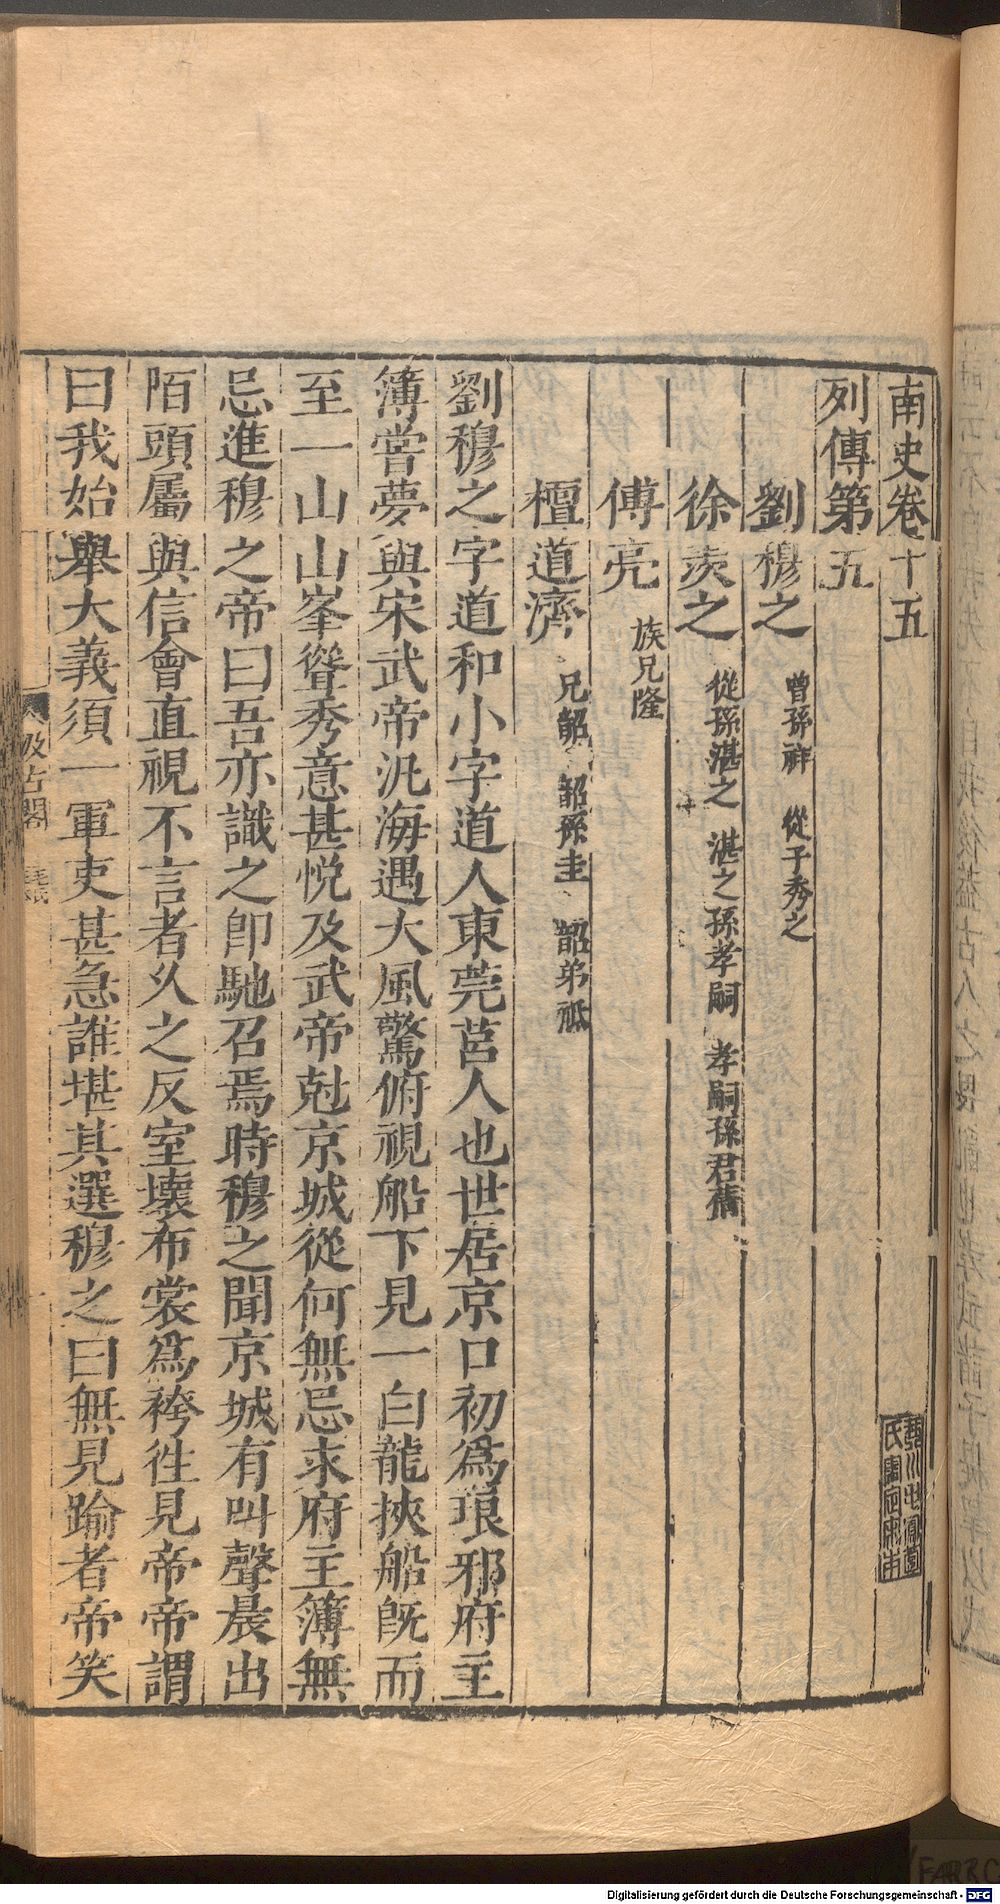 南史卷十五
列傳第五
劉穆之 曾孫祥 從子秀之
徐羨之 從孫湛之 湛之孫孝嗣 孝嗣孫君蒨
傅亮 族兄隆
檀道濟 兄韶 韶孫圭 韶弟祗
劉穆之字道和小字道人東莞莒人也世居京口初爲琅邪府主
簿嘗夢與宋武帝汎海遇大風驚俯視船下見一白龍挾船旣而
至一山山峯聳秀意甚悅及武帝尅京城從何無忌求府主簿無
忌進穆之帝曰吾亦識之卽馳召焉時穆之聞京城有叫聲晨出
陌頭屬與信會直視不言者久之反室壞布裳爲袴徃見帝帝謂
曰我始舉大義須一軍吏甚急誰堪其選穆之曰無見踰者帝笑
汲古閣
毛氏
Digitalisierung gefördert durch die Deutsche Forschungsgemeinschaft - DFG